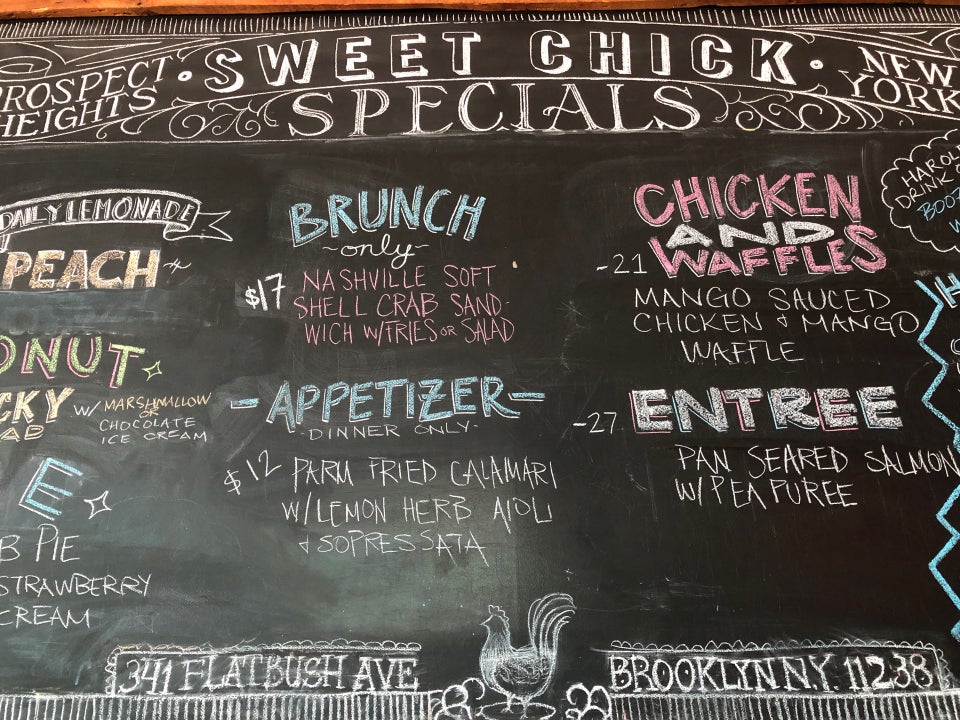 PROSPECT HEIGHTS
· SWEET CHICK ·
NEW YORK
SPECIALS
DAILY LEMONADE
PEACH
W/ MARSHMALLOW
OR
CHOCOLATE
ICE CREAM
PIE
STRAWBERRY
CREAM
BRUNCH
~only~
$17 NASHVILLE SOFT
SHELL CRAB SAND-
WICH W/FRIES OR SALAD
-APPETIZER-
-DINNER ONLY-
$12 PARM FRIED CALAMARI
W/LEMON HERB AIOLI
& SOPRESSATA
CHICKEN
AND
-21 WAFFLES
MANGO SAUCED
CHICKEN & MANGO
WAFFLE
-27 ENTREE
PAN SEARED SALMON
W/ PEA PUREE
DRINK
341 FLATBUSH AVE
BROOKLYN N.Y. 11238